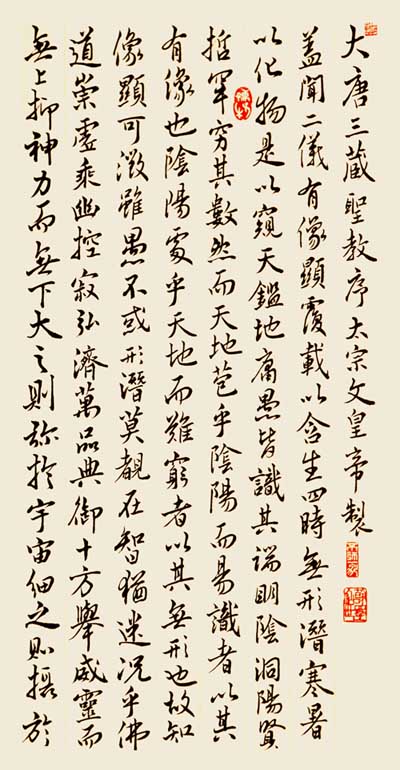 大唐三蔵聖教序太宗文皇帝製
蓋聞二儀有像顯覆載以含生四時無形潛寒暑
以化物是以窺天鑑地庸愚皆識其端明陰洞陽賢
哲罕窮其數然而天地苞乎陰陽而易識者以其
有像也陰陽處乎天地而難窮者以其無形也故知
像顯可徵雖愚不或形潛莫覩在智猶迷況乎佛
道崇虛乘幽控寂弘濟萬品典御十方舉威靈而
無上抑神力而無下大之則彌於宇宙細之則攝於